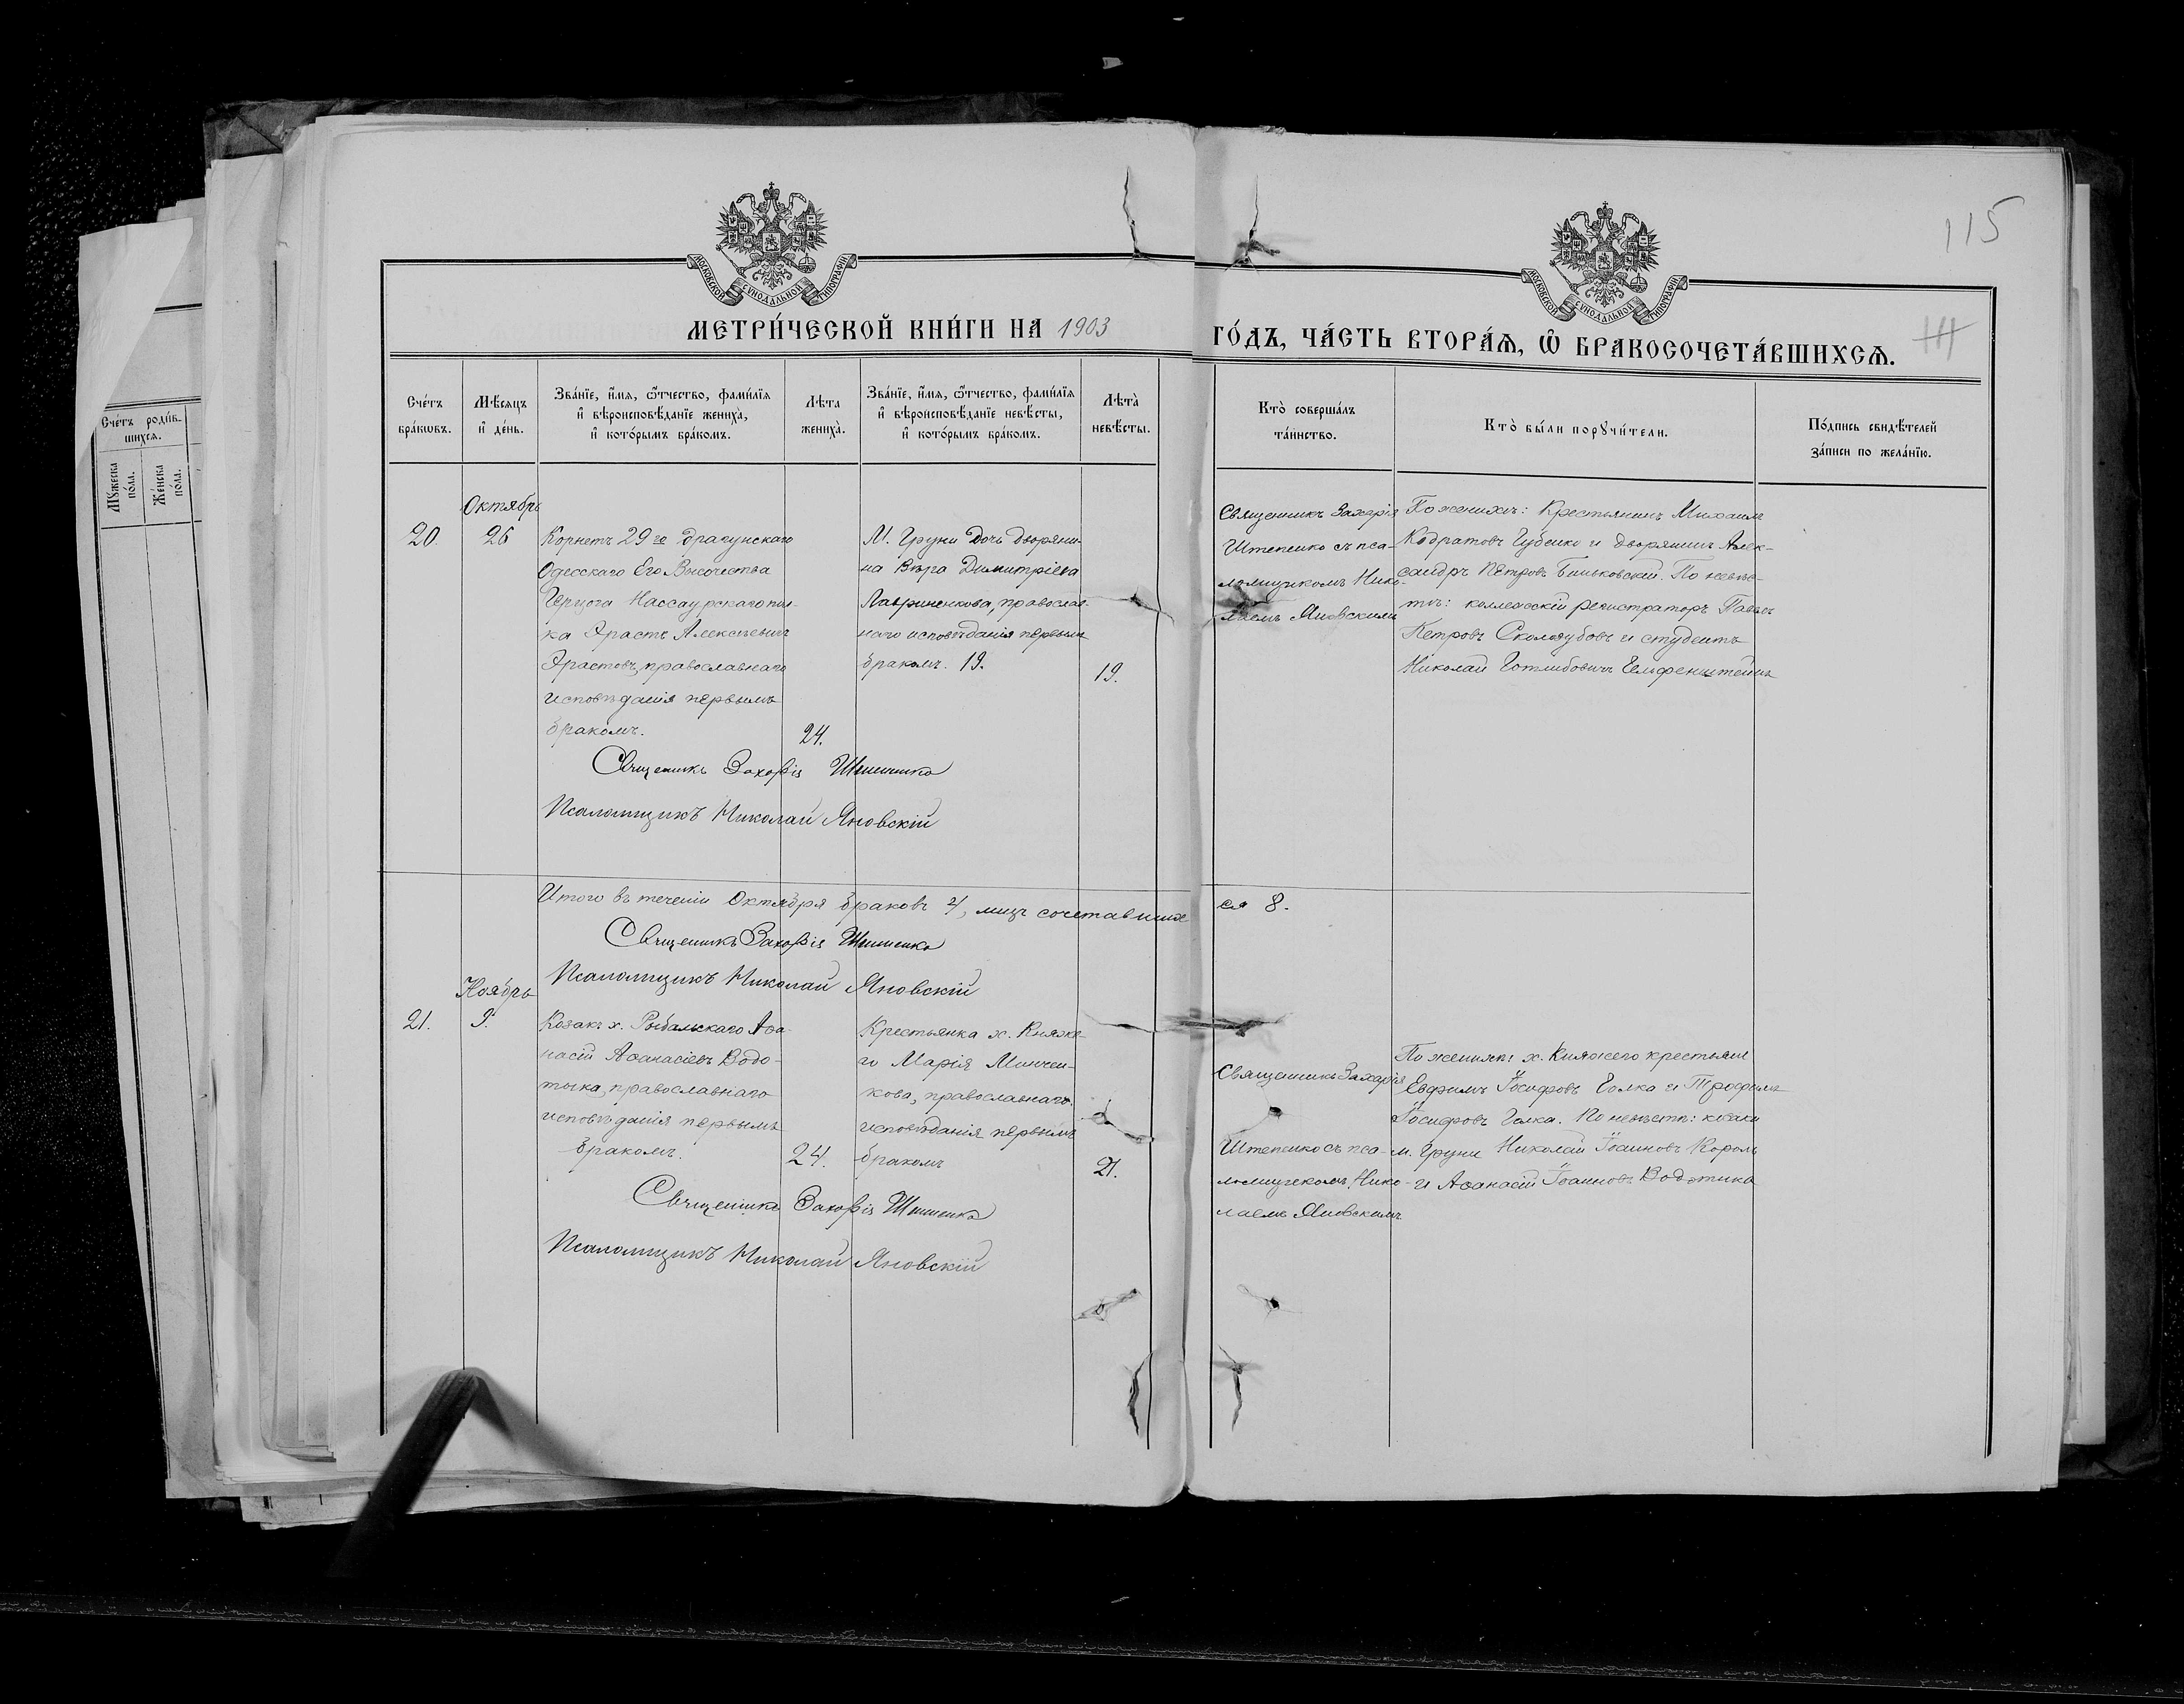 115
МОСКОВСКОЙ СѴНОДАЛЬНОЙ ТИПОГРАФІИ
МОСКОВСКОЙ СѴНОДАЛЬНОЙ ТИПОГРАФІИ
МЕТРИ́ЧЕСКОЙ КНИ́ГИ НА 1903
ГО́ДЪ, ЧА́СТЬ ВТОРА́Ѧ, Ѡ҆ БРАКОСОЧЕТА́ВШИХСѦ.
Сче́тъ роди́в-
шихсѧ.
Мꙋ́жеска по́ла.
Же́нска по́ла.
Сче́тъ
бра́кѡвъ.
Мѣ́сѧцъ
и҆ де́нь.
Зва́нїе, и҆́мѧ, ѻ҆́тчество, фами́лїѧ
и҆ вѣроисповѣ́данїе жениха̀,
и҆ кото́рымъ бра́комъ.
Лѣ́та
жениха̀.
Зва́нїе, и҆́мѧ, ѻ҆́тчество, фами́лїѧ
и҆ вѣроисповѣ́данїе невѣ́сты,
и҆ кото́рымъ бра́комъ.
Лѣ́та
невѣ́сты.
Кто̀ соверша́лъ
та́инство.
Кто̀ бы́ли порꙋчи́тели.
По́дпись свидѣ́телей
за́писи по жела́нїю.
Октябрь
20.
26
Корнетъ 29 го драгунскаго
Одесскаго Его Высочества
Герцога Нассаурскаго пол-
ка Эрастъ Алексѣевичъ
Эрастовъ, православнаго
исповѣданія первымъ
бракомъ.
24.
М. Груни Дочь Дворяни-
на Вѣра Димитріева
Лавриненкова, православ-
наго исповѣданія первымъ
бракомъ. 19.
19.
Священникъ Захарія
Штепенко съ пса-
ломщикомъ Нико-
лаемъ Яновскимъ
По женихѣ: Крестьянинъ Михаилъ
Кодратовъ Губенко и дворянинъ Алек-
сандръ Петровъ Биньковскій. По невѣс-
тѣ: коллежскій регистраторъ Павелъ
Петровъ Сколозубовъ и студентъ
Николай Готлибовичъ Гельфенштейнъ
Священникъ Захарія Штепенко
Псаломщикъ Николай Яновскій
Итого въ теченіи Октября браковъ 4, лицъ сочетавших
ся 8.
Священникъ Захарія Штепенко
Псаломщикъ Николай Яновскій
Ноябрь
21.
9.
Козакъ х. Рыбальскаго Аѳа-
насій Аѳанасіевъ Водо-
тыка, православнаго
исповѣданія первымъ
бракомъ.
24.
Крестьянка х. Княже-
го Марія Минчен-
кова, православнаго
исповѣданія первымъ
бракомъ
21.
Священникъ Захарія
Штепенко съ пса-
ломщикомъ Нико-
лаемъ Яновскимъ
По женихѣ: х. Княжего крестьяне
Евфимъ Іосифовъ Голка и Трофимъ
Іосифовъ Голка. По невѣстѣ: козаки
м. Груни Николай Іоанновъ Король
и Аѳанасій Іоанновъ Водотика
Священникъ Захарія Штепенко
Псаломщикъ Николай Яновскій